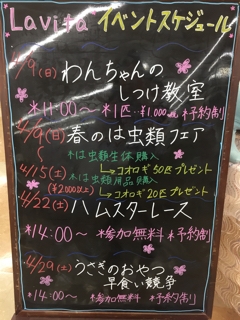 Lavita イベントスケジュール
4/9(日) わんちゃんの
しつけ教室
*11:00～ *1匹 ¥1,000 *予約制
4/9(日) 春のは虫類フェア
～
4/15(土)
*は虫類生体購入
→コオロギ50匹プレゼント
*は虫類用品購入
(¥2000以上)
→コオロギ20匹プレゼント
4/22(土) ハムスターレース
*14:00～ *参加無料 *予約制
4/29(土) うさぎのおやつ
早食い競争
*14:00～ *参加無料 *予約制